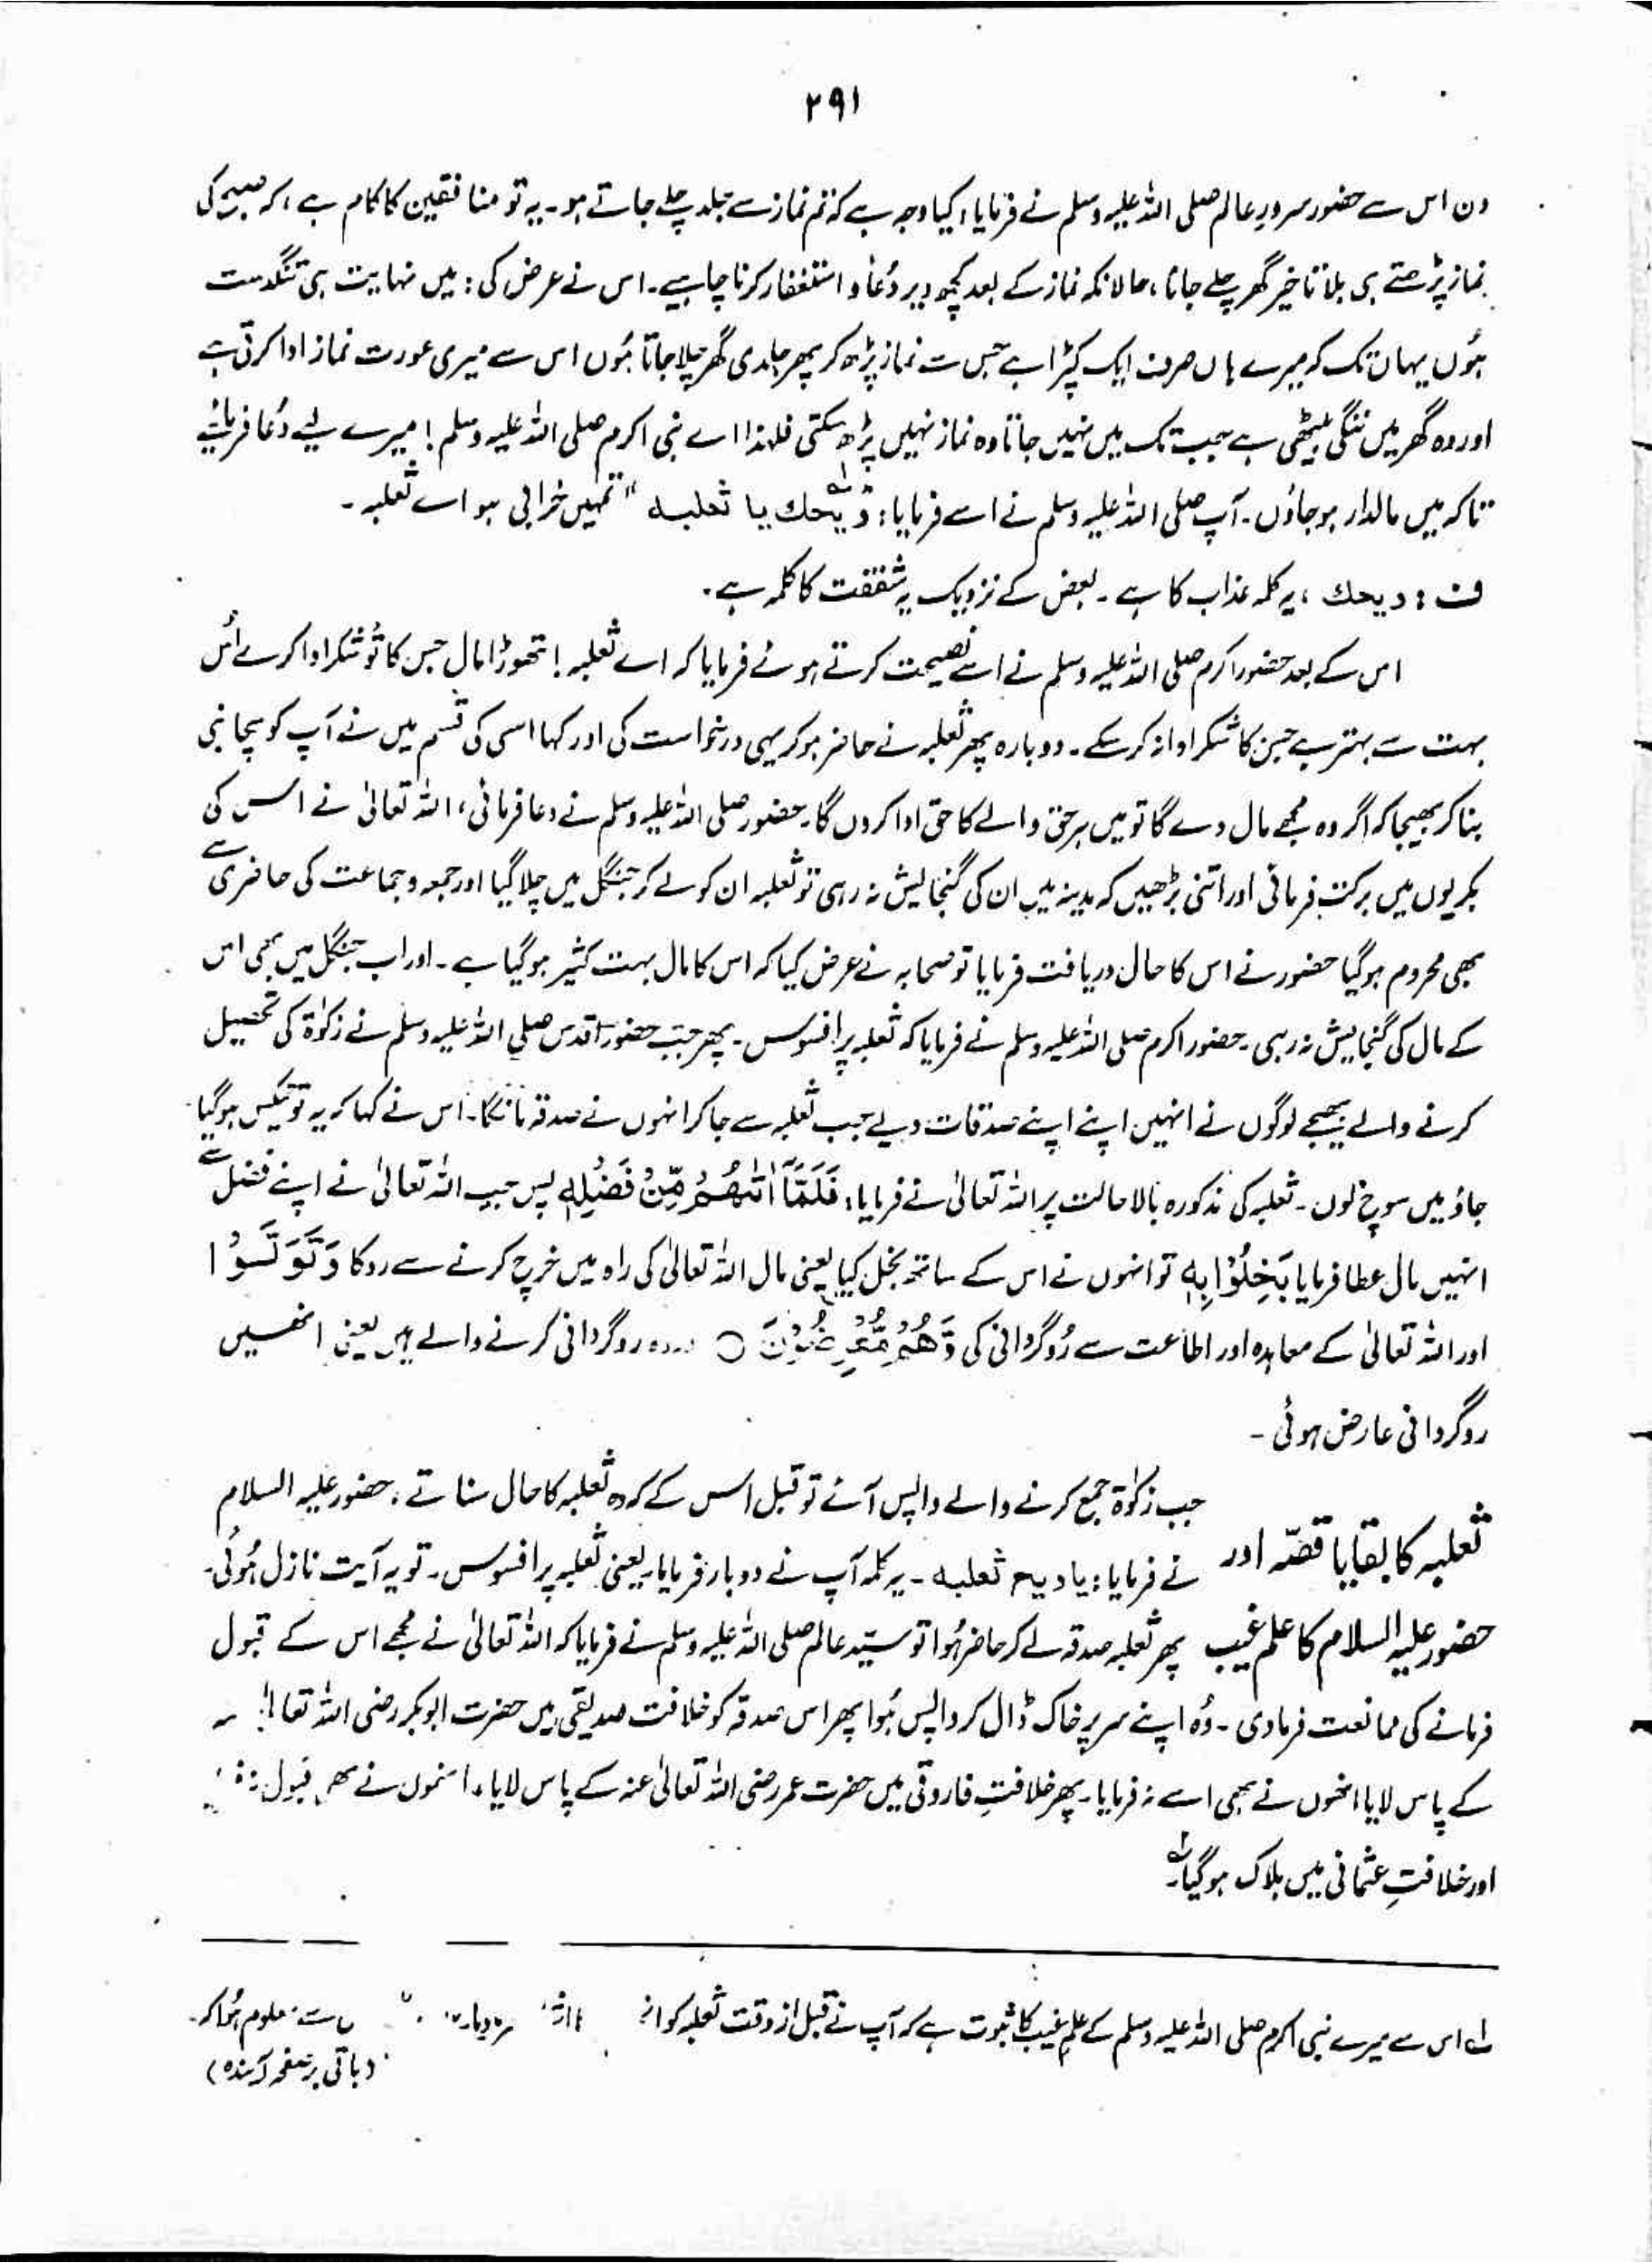 ۲۹۱
دن اس سے حضور سرورِ عالم صلی اللہ علیہ وسلم نے فرمایا، کیا وجہ ہے کہ تم نماز سے جلد چلے جاتے ہو۔ یہ تو منافقین کا کام ہے، کہ صبح کی
نماز پڑھتے ہی بلا تاخیر گھر چلے جانا، حالانکہ نماز کے بعد کچھ دیر دُعا و استغفار کرنا چاہیے۔ اس نے عرض کی: میں نہایت ہی تنگدست
ہُوں یہاں تک کہ میرے ہاں صرف ایک کپڑا ہے جس سے نماز پڑھ کر پھر جلدی گھر چلا جاتا ہُوں اس سے میری عورت نماز ادا کرتی ہے
اور وہ گھر میں ننگی بیٹھی ہے جب تک میں نہیں جاتا وہ نماز نہیں پڑھ سکتی فلہٰذا اے نبی اکرم صلی اللہ علیہ وسلم! میرے لیے دُعا فرمائیے
تاکہ میں مالدار ہو جاؤں۔ آپ صلی اللہ علیہ وسلم نے اسے فرمایا: وَیحك یا ثعلبہ "تمہیں خرابی ہو اے ثعلبہ۔
ف: ویحك، یہ کلمہ عذاب کا ہے۔ بعض کے نزدیک یہ شفقت کا کلمہ ہے۔
اس کے بعد حضور اکرم صلی اللہ علیہ وسلم نے اسے نصیحت کرتے ہوئے فرمایا کہ اے ثعلبہ! تھوڑا مال جس کا تُو شکر ادا کرے اُس
بہت سے بہتر ہے جس کا شکر ادا نہ کر سکے۔ دوبارہ پھر ثعلبہ نے حاضر ہو کر یہی درخواست کی اور کہا اسی کی قسم میں نے آپ کو سچا نبی
بنا کر بھیجا کہ اگر وہ مجھے مال دے گا تو میں ہر حق والے کا حق ادا کروں گا۔ حضور صلی اللہ علیہ وسلم نے دعا فرمائی، اللہ تعالیٰ نے اس کی
بکریوں میں برکت فرمائی اور اتنی بڑھیں کہ مدینہ میں ان کی گنجایش نہ رہی تو ثعلبہ ان کو لے کر جنگل میں چلا گیا اور جمعہ و جماعت کی حاضری سے
بھی محروم ہو گیا حضور نے اس کا حال دریافت فرمایا تو صحابہ نے عرض کیا کہ اس کا مال بہت کثیر ہو گیا ہے۔ اور اب جنگل میں بھی اس
کے مال کی گنجایش نہ رہی۔ حضور اکرم صلی اللہ علیہ وسلم نے فرمایا کہ ثعلبہ پر افسوس۔ پھر جب حضور اقدس صلی اللہ علیہ وسلم نے زکوٰۃ کی تحصیل
کرنے والے بھیجے لوگوں نے انہیں اپنے اپنے صدقات دیے جب ثعلبہ سے جا کر انہوں نے صدقہ مانگا۔ اس نے کہا کہ یہ تو ٹیکس ہو گیا۔
جاؤ میں سوچ لوں۔ ثعلبہ کی مذکورہ بالا حالت پر اللہ تعالیٰ نے فرمایا: فَلَمَّآ اٰتٰهُمْ مِّنْ فَضْلِهٖ پس جب اللہ تعالیٰ نے اپنے فضل سے
انہیں مال عطا فرمایا بَخِلُوْا بِهٖ تو انہوں نے اس کے ساتھ بخل کیا یعنی مال اللہ تعالیٰ کی راہ میں خرچ کرنے سے روکا وَتَوَلَّوْا
اور اللہ تعالیٰ کے معاہدہ اور اطاعت سے رُوگردانی کی وَّهُمْ مُّعْرِضُوْنَ ○ وہ روگردانی کرنے والے ہیں یعنی انھیں
روگردانی عارض ہوئی۔
جب زکوٰۃ جمع کرنے والے واپس آئے تو قبل اس کے کہ وہ ثعلبہ کا حال سناتے، حضور علیہ السلام
ثعلبہ کا بقایا قصّہ اور نے فرمایا: یا ویح ثعلبہ۔ یہ کلمہ آپ نے دو بار فرمایا یعنی ثعلبہ پر افسوس۔ تو یہ آیت نازل ہُوئی۔
حضور علیہ السلام کا علم غیب پھر ثعلبہ صدقہ لے کر حاضر ہُوا تو سیّد عالم صلی اللہ علیہ وسلم نے فرمایا کہ اللہ تعالیٰ نے مجھے اس کے قبول
فرمانے کی ممانعت فرما دی۔ وُہ اپنے سر پر خاک ڈال کر واپس ہُوا پھر اس صدقہ کو خلافت صدیقی میں حضرت ابوبکر رضی اللہ تعالیٰ
کے پاس لایا انھوں نے بھی اسے نہ فرمایا۔ پھر خلافتِ فاروقی میں حضرت عمر رضی اللہ تعالیٰ عنہ کے پاس لایا، انہوں نے بھی قبول نہ
اور خلافتِ عثمانی میں ہلاک ہو گیا۔
لہ اس سے میرے نبی اکرم صلی اللہ علیہ وسلم کے علمِ غیب کا ثبوت ہے کہ آپ نے قبل از وقت ثعلبہ کو معلوم ہُوا کہ
(باقی بر صفحہ آیندہ)